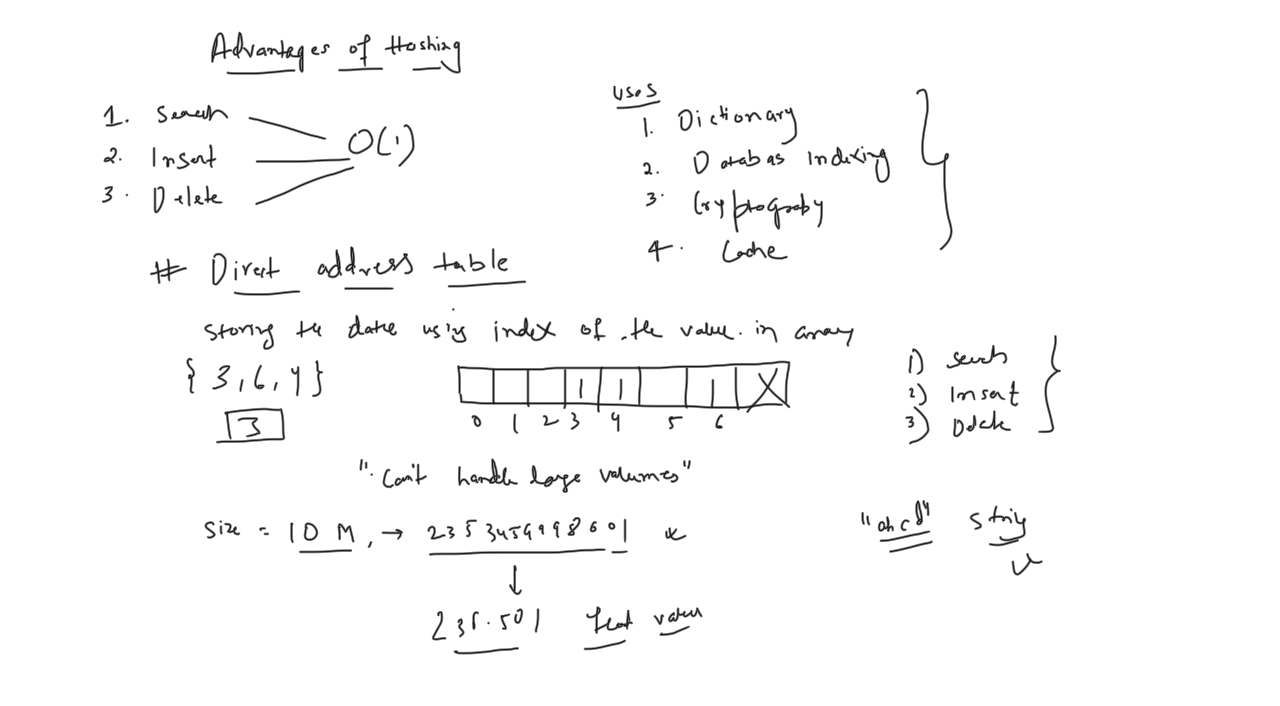 Advantages of Hashing
1. Search
2. Insert
3. Delete
O(1)
uses
1. Dictionary
2. Databas Indexing
3. Cryptography
4. Cache
# Direct address table
Storing the data using index of the value in array
{3, 6, 4}
3
1 1 1 X
0 1 2 3 4 5 6
1) Search
2) Insert
3) Delete
"Can't handle large volumes"
Size = 10 M, →
"abcd" string
235.501 float values